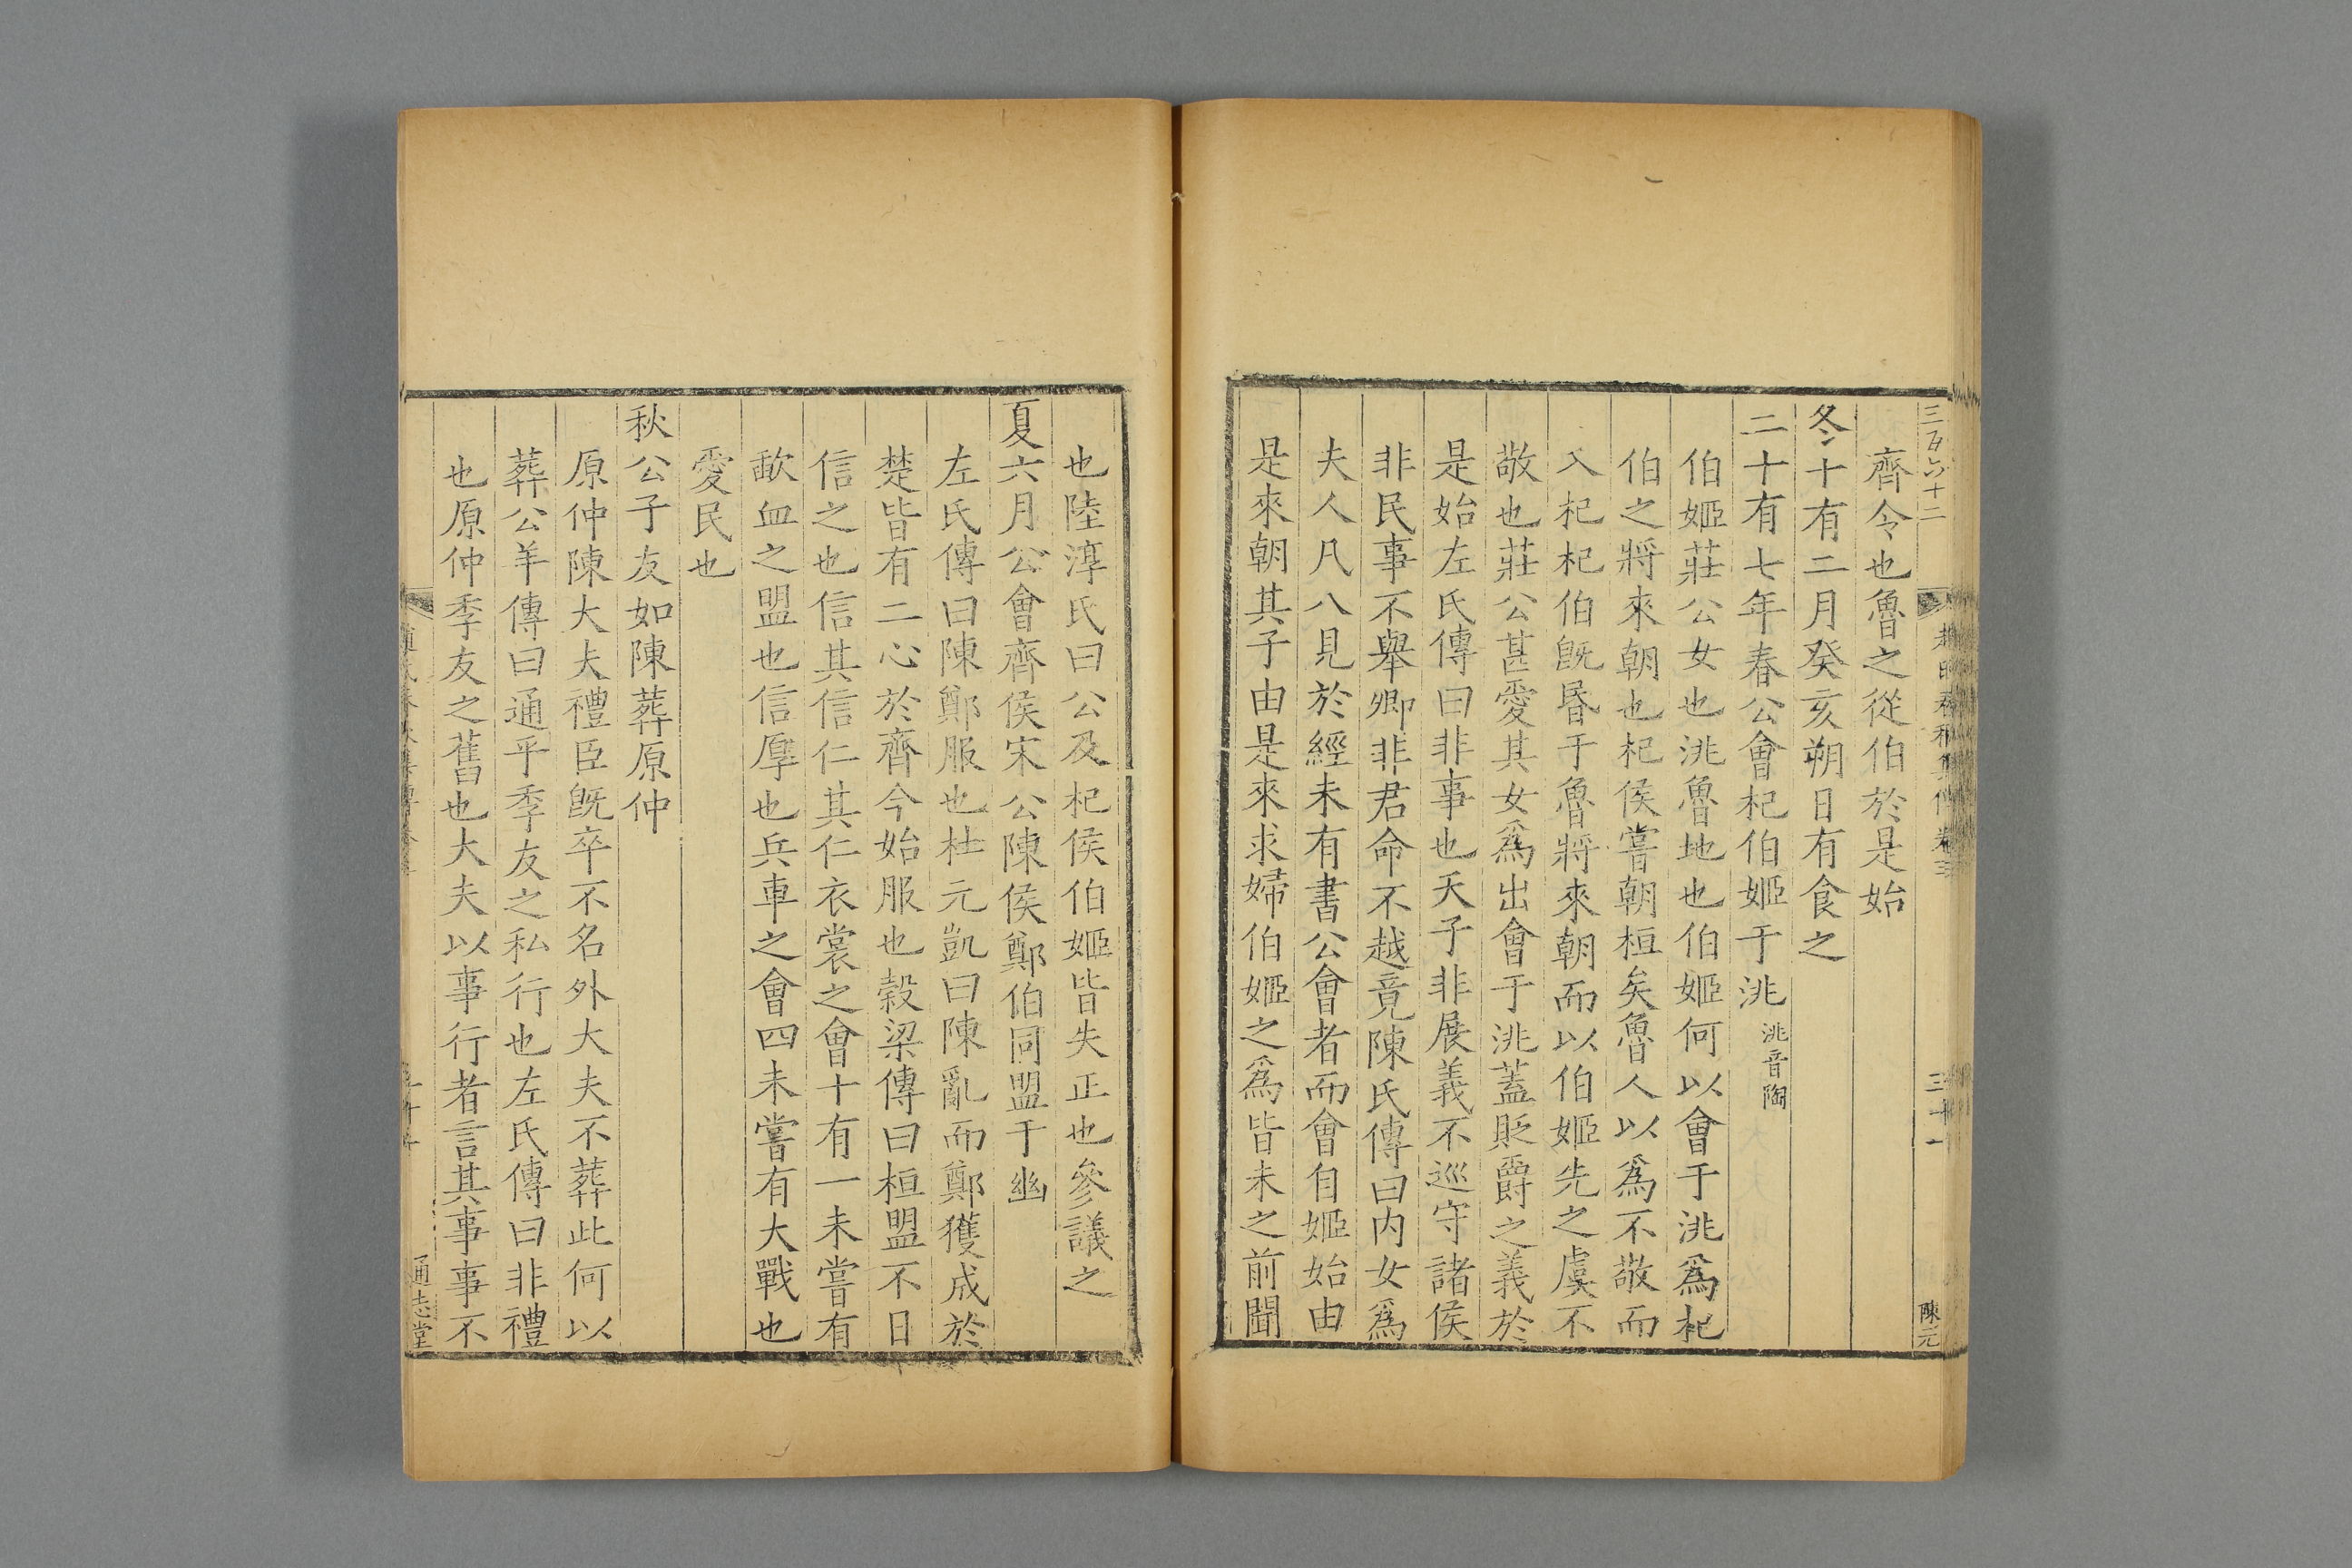 三百六十二
三十一
陳元
齊令也魯之從伯於是始
冬十有二月癸亥朔日有食之
二十有七年春公會杞伯姬于洮洮音陶
伯姬莊公女也洮魯地也伯姬何以會于洮爲杞
伯之將來朝也杞侯嘗朝桓矣魯人以爲不敬而
入杞杞伯旣昏于魯將來朝而以伯姬先之虞不
敬也莊公甚愛其女爲出會于洮蓋貶爵之義於
是始左氏傳曰非事也天子非展義不巡守諸侯
非民事不舉卿非君命不越竟陳氏傳曰内女爲
夫人凡八見於經未有書公會者而會自姬始由
是來朝其子由是來求婦伯姬之爲皆未之前聞
也陸淳氏曰公及杞侯伯姬皆失正也參議之
夏六月公會齊侯宋公陳侯鄭伯同盟于幽
左氏傳曰陳鄭服也杜元凱曰陳亂而鄭獲成於
楚皆有二心於齊今始服也穀梁傳曰桓盟不日
信之也信其信仁其仁衣裳之會十有一未嘗有
歃血之盟也信厚也兵車之會四未嘗有大戰也
愛民也
秋公子友如陳葬原仲
原仲陳大夫禮臣旣卒不名外大夫不葬此何以
葬公羊傳曰通乎季友之私行也左氏傳曰非禮
也原仲季友之舊也大夫以事行者言其事事不
通志堂